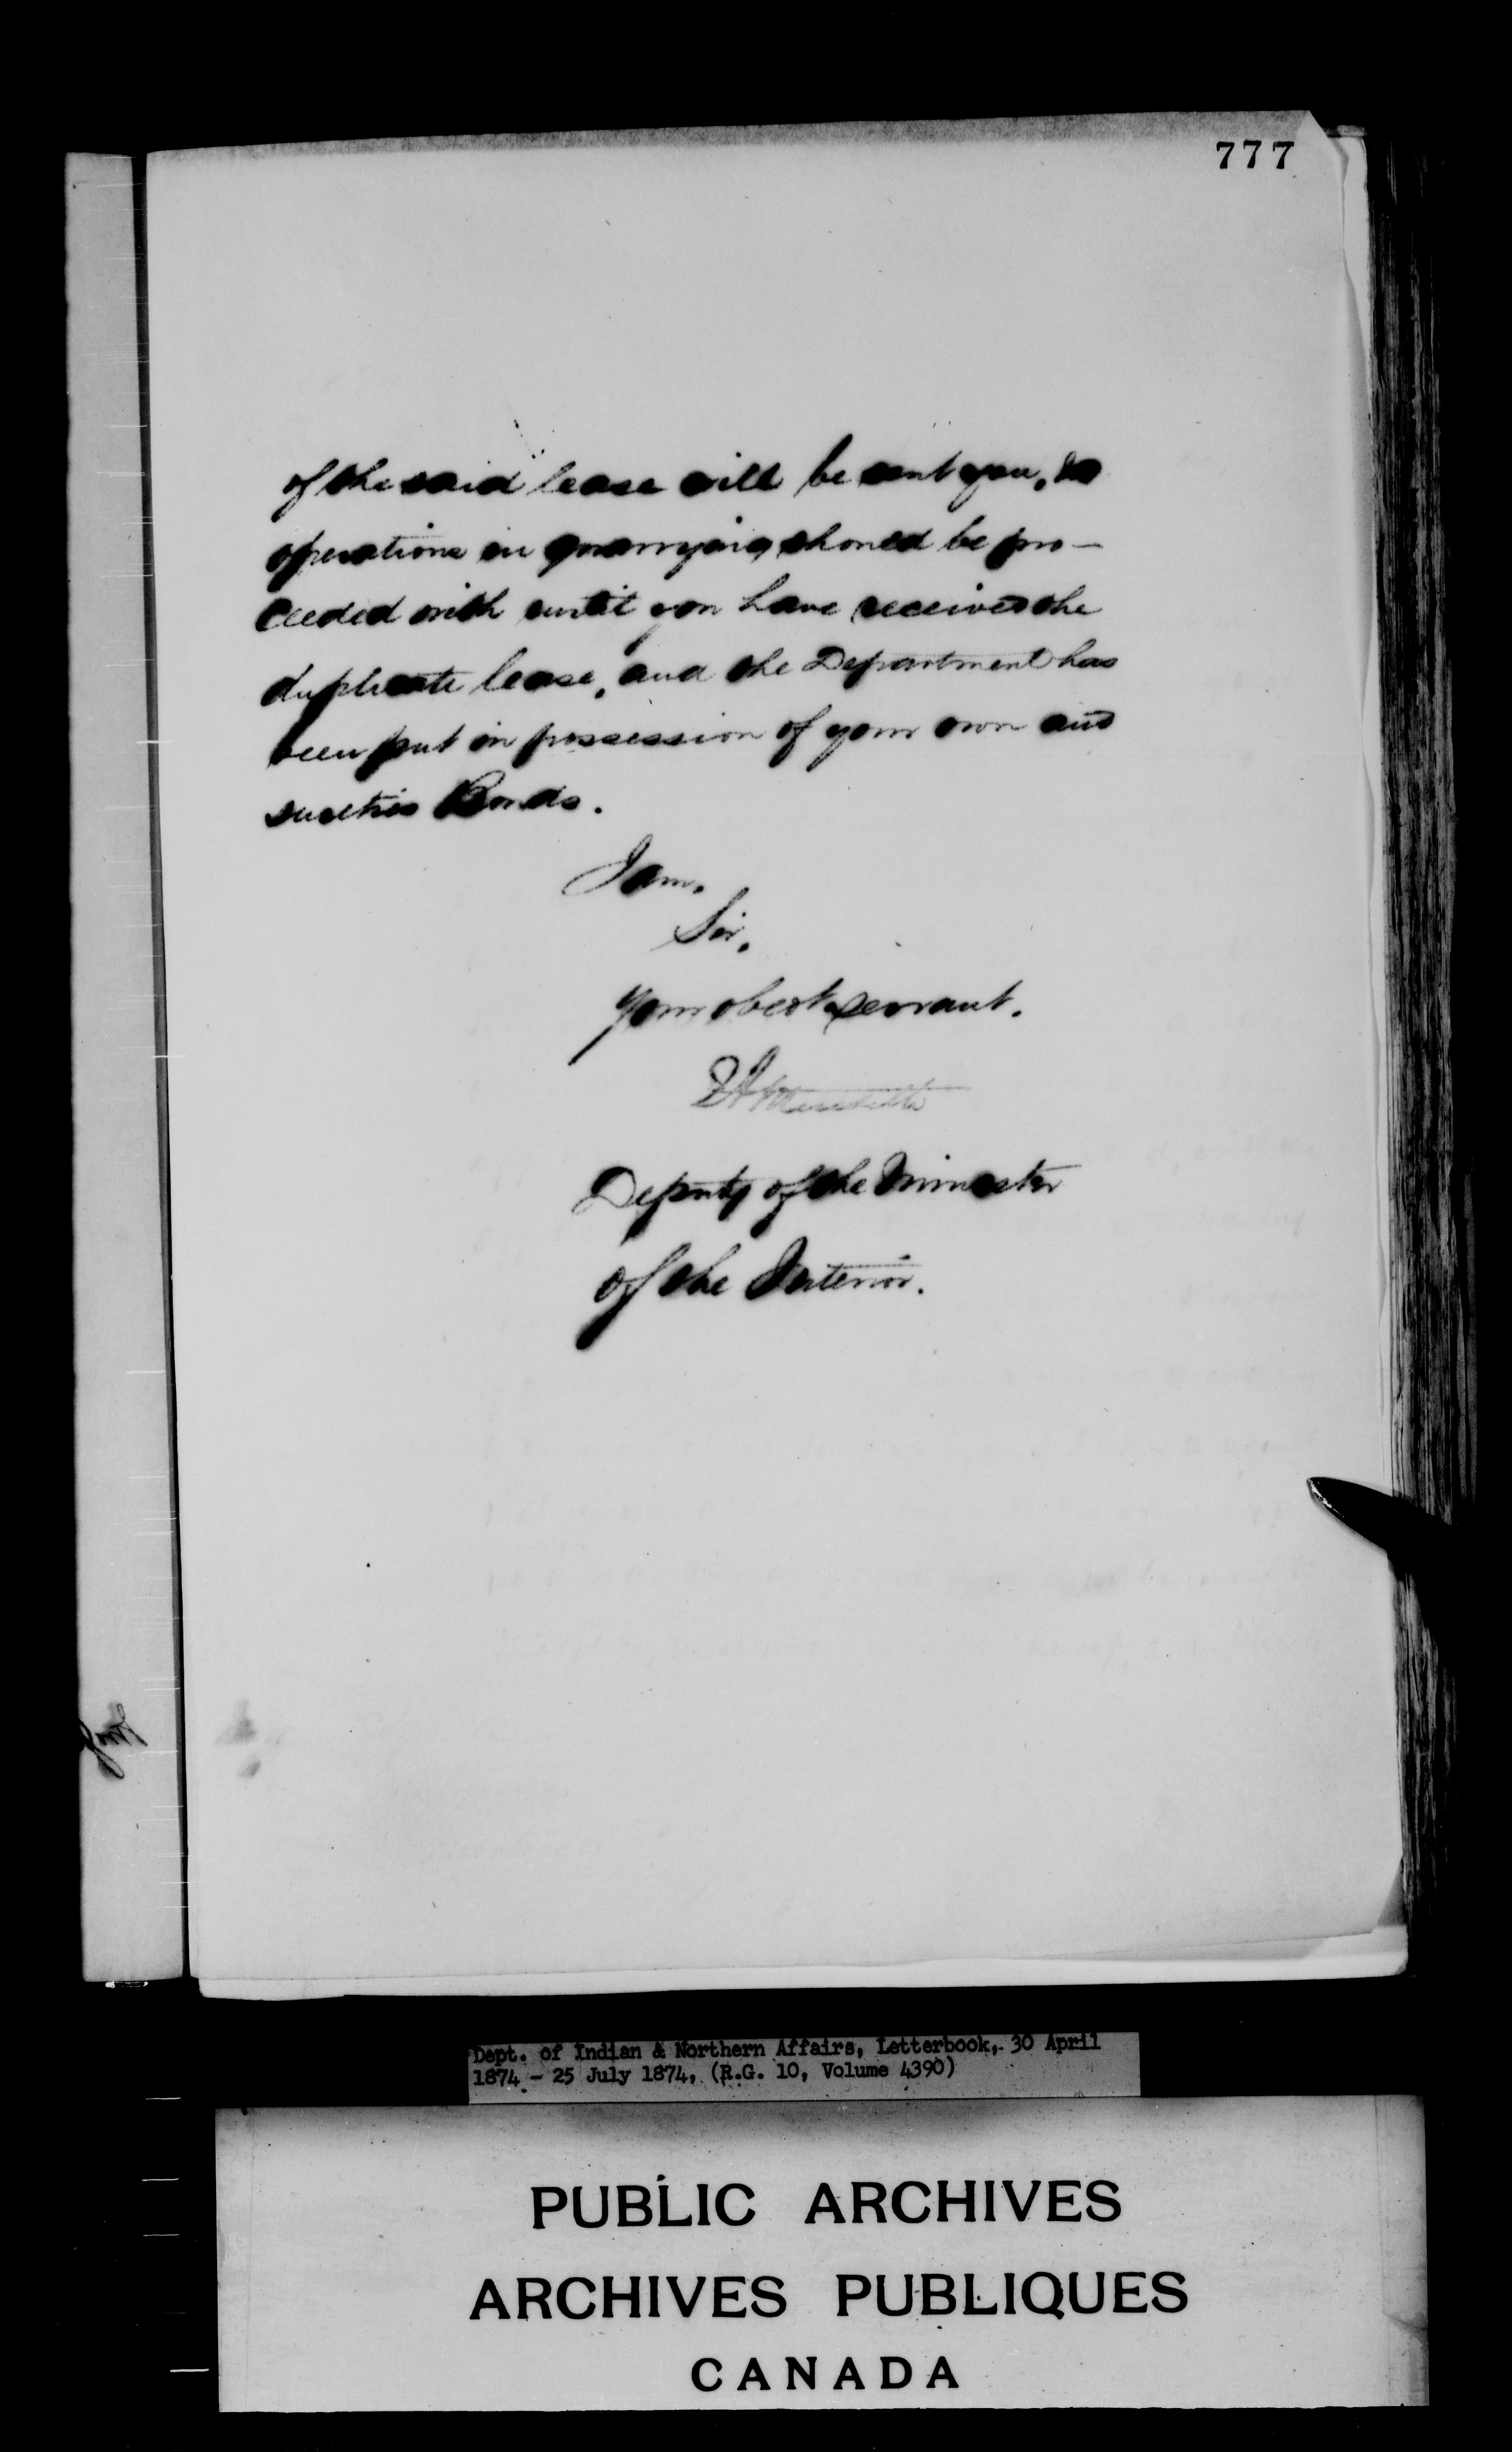 777
of the said lease will be sent you, no
operations in quarrying should be pro-
ceeded with until you have received the
duplicate lease, and the Department has
been put in possession of your own and
sureties Bonds.
I am,
Sir,
Your obedt servant.
E A Meredith
Deputy of the Minister
of the Interior.
Dept. of Indian & Northern Affairs, Letterbook, 30 April
1874 - 25 July 1874, (R.G. 10, Volume 4390)
PUBLIC ARCHIVES
ARCHIVES PUBLIQUES
CANADA